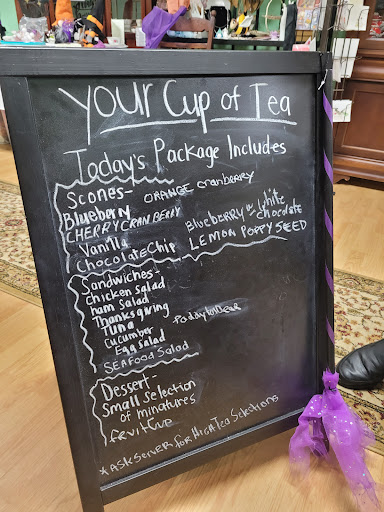 Your Cup of Tea
Today's Package Includes
Scones-
Blueberry ORANGE cranberry
CHERRY CRANBERRY
Vanilla Blueberry w/ white chocolate
Chocolate Chip LEMON POPPY SEED
Sandwiches-
chicken salad
ham Salad
Thanksgiving
Tuna
cucumber
Egg Salad
SEAFOOD Salad
Dessert-
Small Selection
of minatures
fruit cup
*ASK Server for High Tea Selections